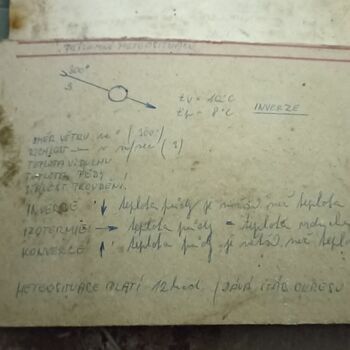 300°
3
tv = 10°C
tp = 8°C
INVERZE
SMĚR VĚTRU ve ° (300°)
RYCHLOST — v m/sec (3)
TEPLOTA VZDUCHU
TEPLOTA PŮDY
INVERZE ↓ teplota půdy je menší než teplota
IZOTERMIE → teplota půdy = teplota
KONVEKCE ↑ teplota půdy je větší než
METEOSITUACE PLATÍ 12 hod.